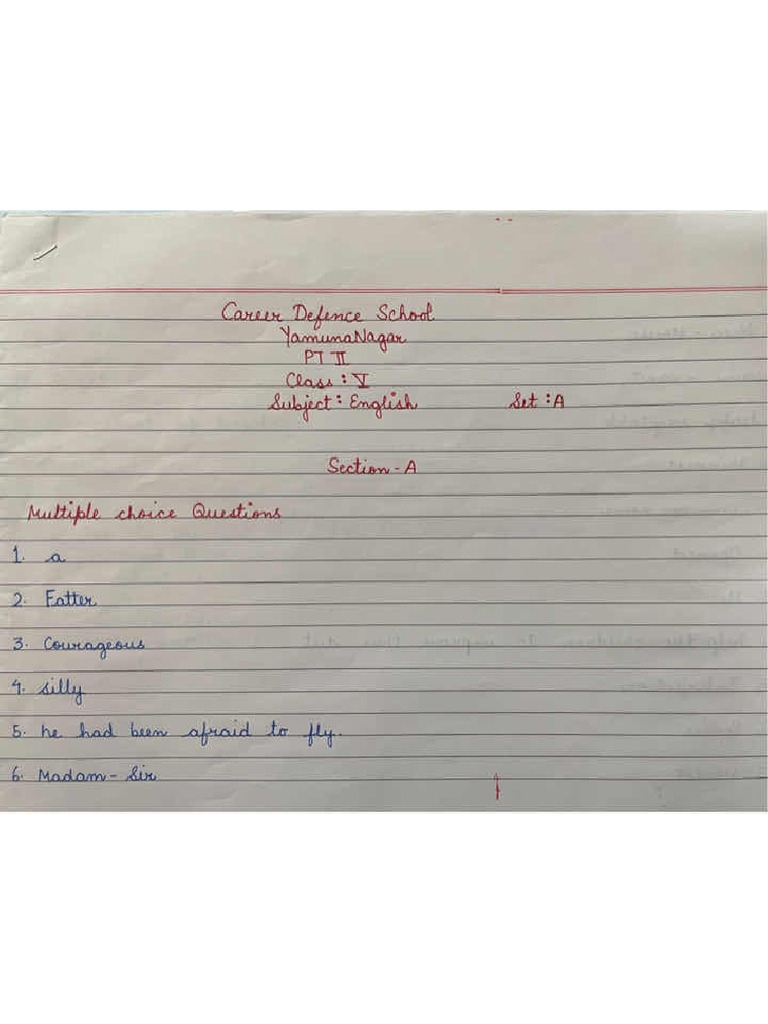 Career Defence School
YamunaNagar
PT II
Class : V
Subject : English Set : A
Section - A
Multiple choice Questions
1. a
2. Fatter
3. Courageous
4. silly
5. he had been afraid to fly.
6. Madam - Sir